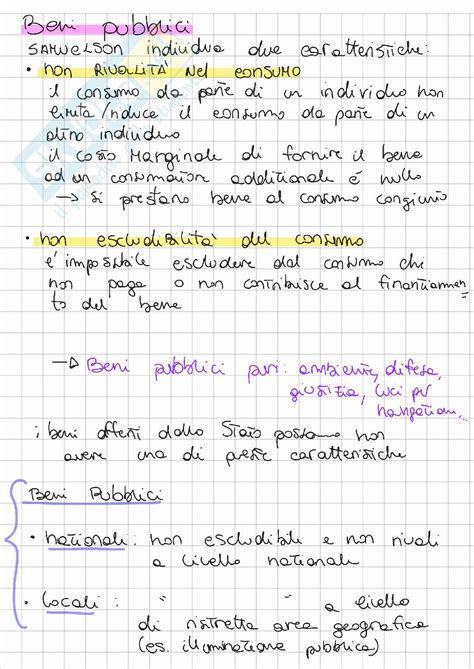 Beni pubblici
SAMUELSON individua due caratteristiche:
• non RIVALLITÀ nel consumo
il consumo da parte di un individuo non
limita/riduce il consumo da parte di un
altro individuo
il costo Marginale di fornire il bene
ad un consumatore addizionale é nullo
→ si prestano bene al consumo congiunto
• non escludibilità del consumo
é impossibile escludere dal consumo chi
non paga o non contribuisce al finanziamen-
to del bene
→ Beni pubblici puri: ambiente, difesa,
giustizia, luci per
navigazioni...
i beni offerti dallo Stato possono non
avere una di queste caratteristiche
Beni Pubblici
• nazionale: non escludibile e non rivali
a livello nazionale
• Locali : " " a livello
di ristretta area geografica
(es. illuminazione pubblica)